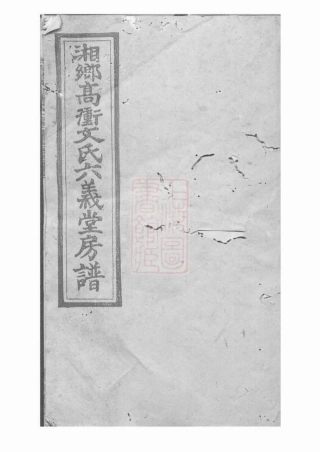 湘鄉高衝文氏六義堂房譜